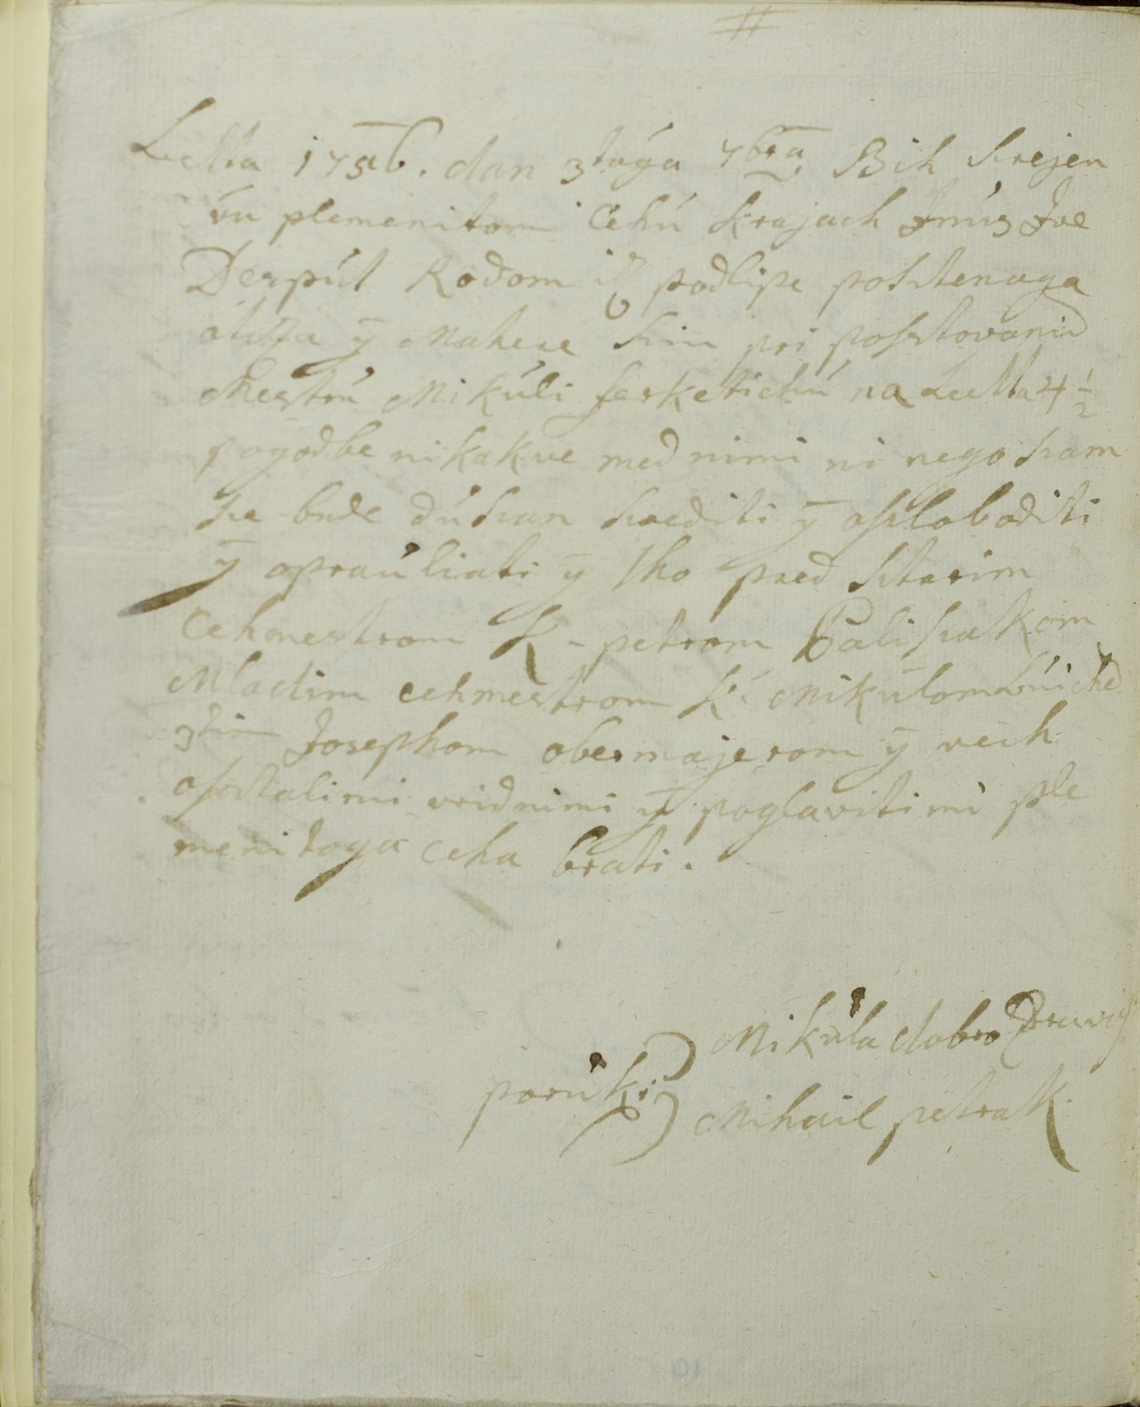 Letta 1756. dan 3tága 7bra Bih srejen
vu plemenitom Cehú Krajach Inús Ive
Derpút Rodom iz podlipe postenoga
otza ÿ Mahere sin pri postovanú
Mestrú Mikúli ferketichú na Letta 4 1/2
pogodbe nikakve med nimi ni nego sam
se bude dúsan srediti ÿ osloboditi
ÿ opraúliati ÿ Sho pred starim
Cehmestrom K- petrom Palisakom
Mladim cehmestrom K: Mikúlom
3tim Josephom obermajerom ÿ vech
ostalimi vridnimi ÿ poglavitimi ple
menitoga ceha brati.
Mikúla dobro
porúki
Mihail petrak.